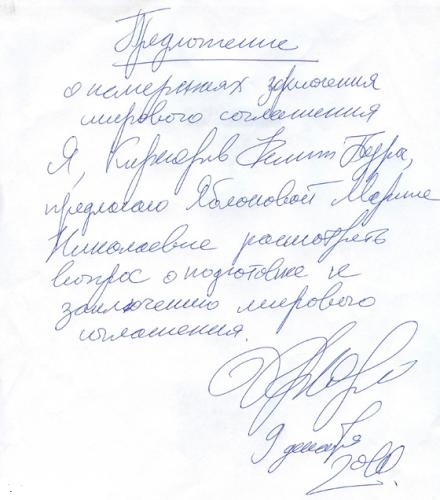 Предложение
о намерениях заключения
мирового соглашения
Я, Киркоров Филипп Бедрос,
предлагаю Яблоковой Марине
Николаевне рассмотреть
вопрос о подготовке к
заключению мирового
соглашения.
9 декабря